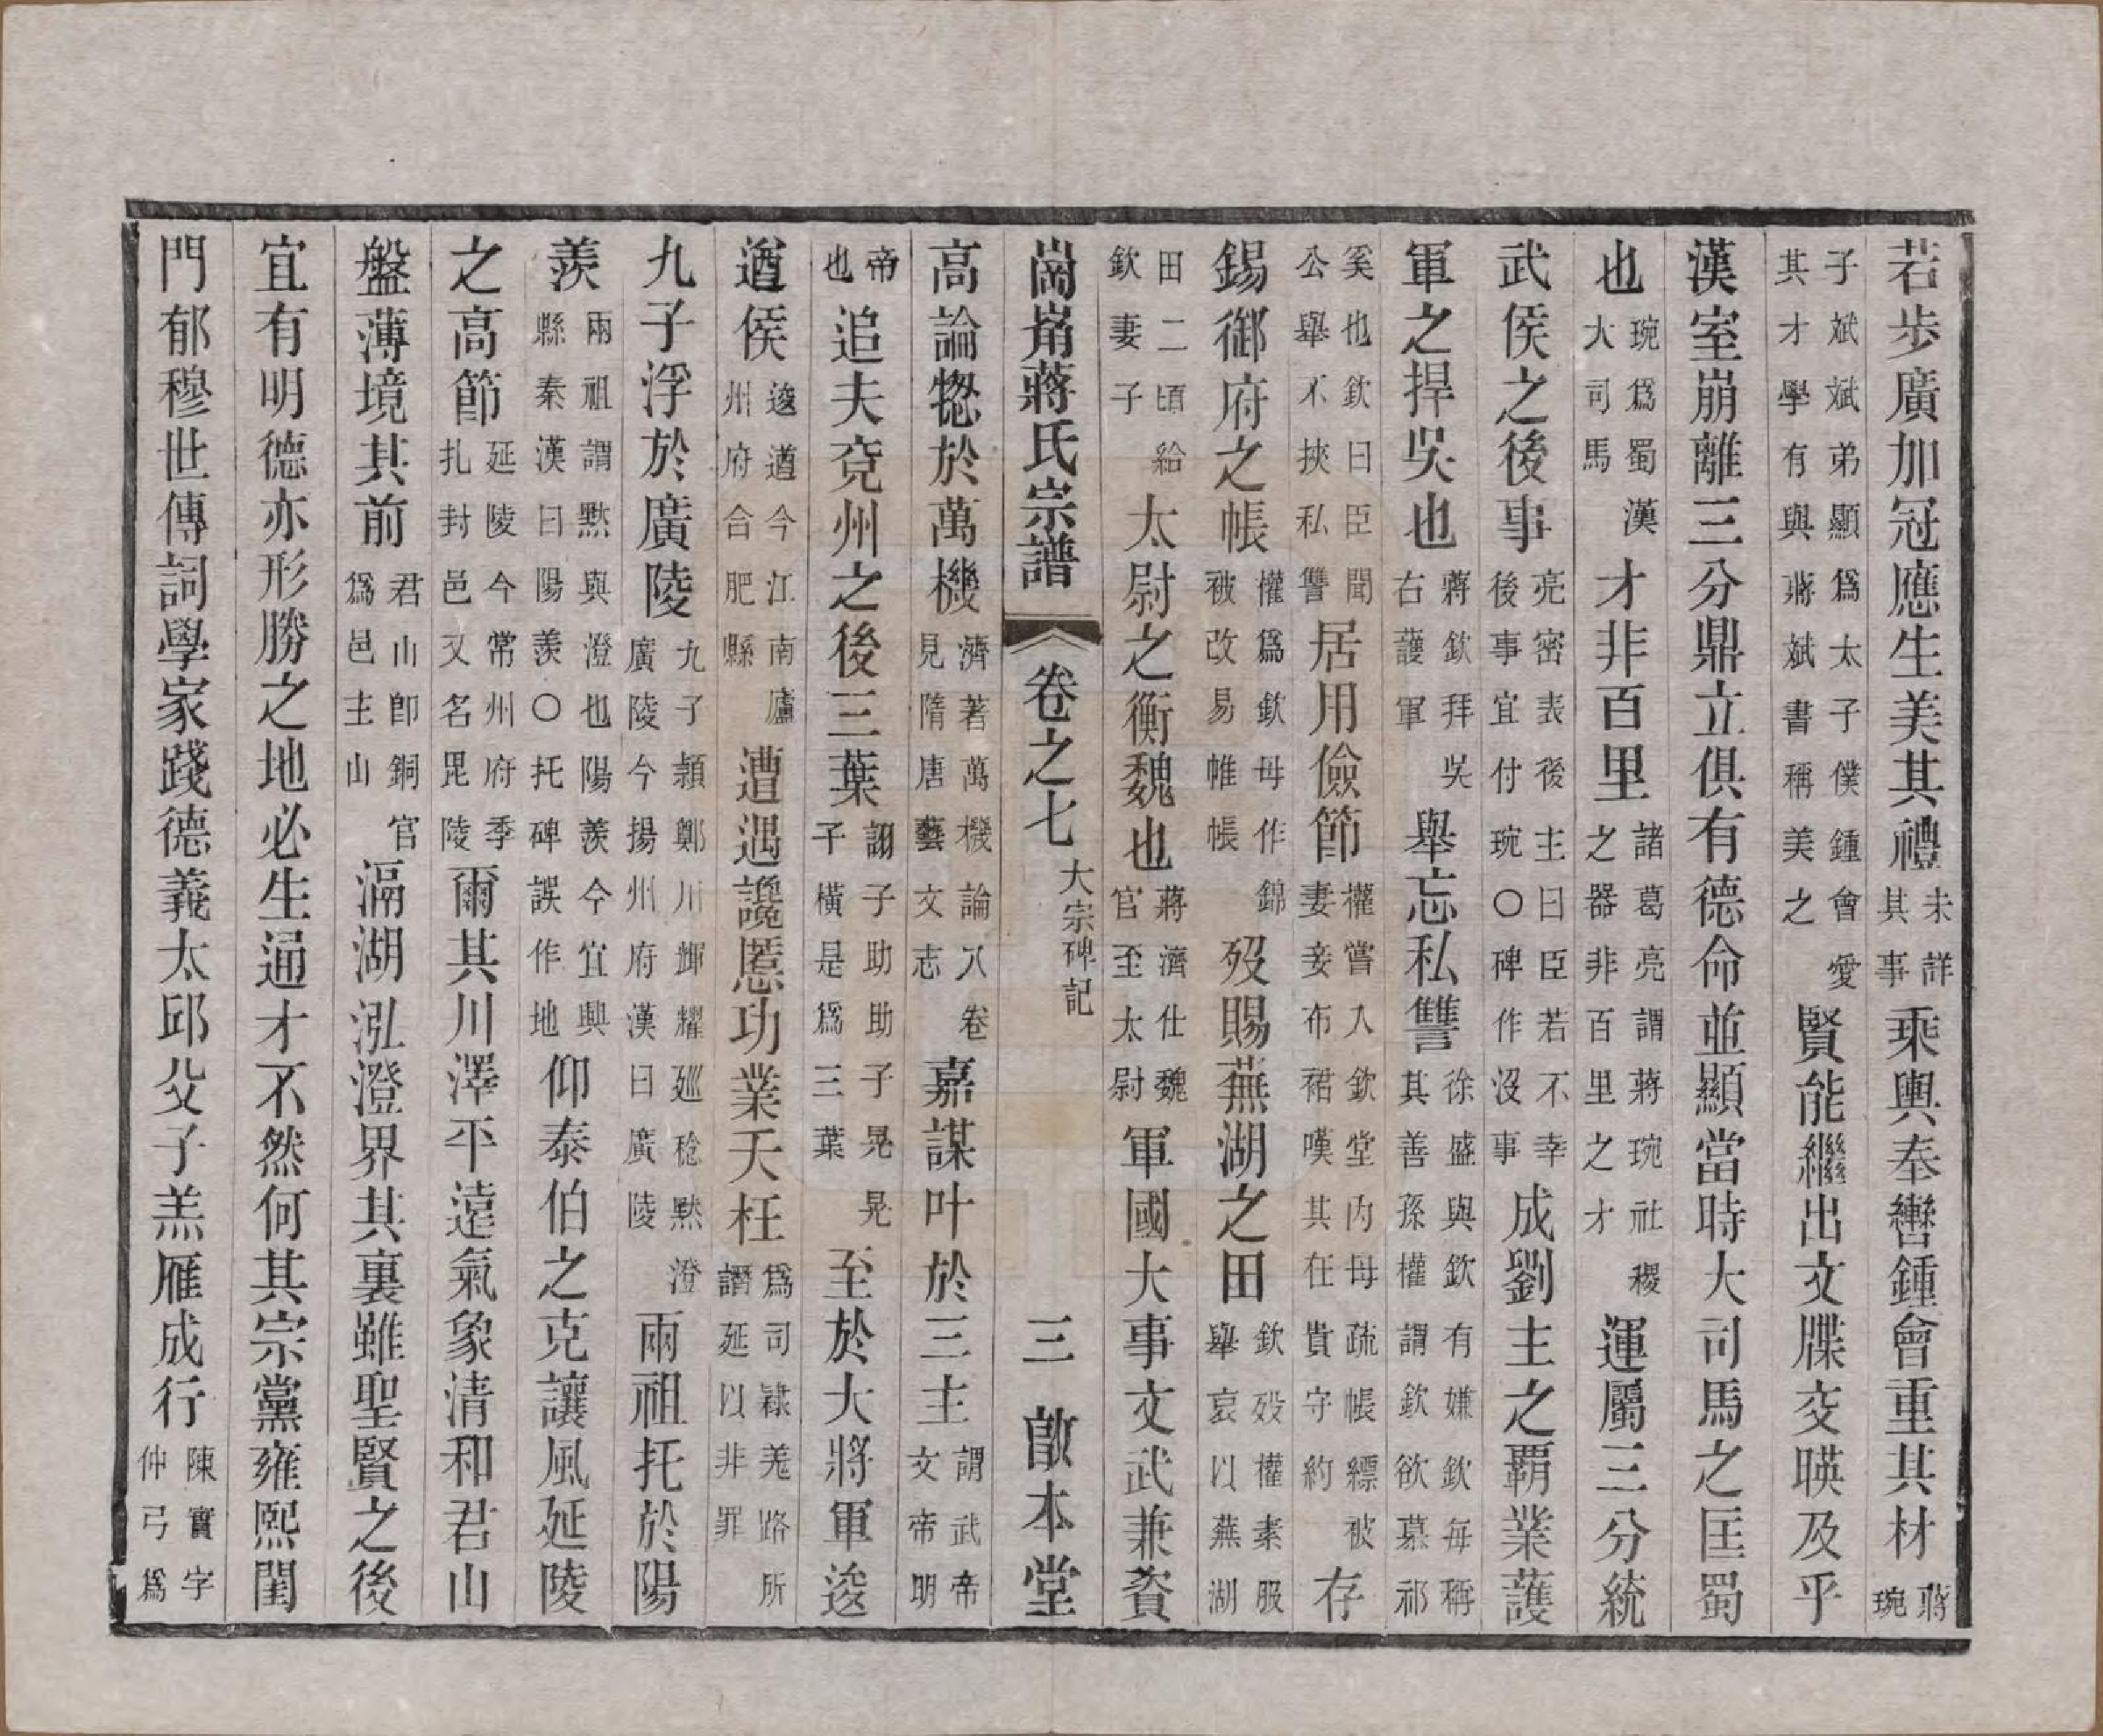 若步廣加冠應生美其禮未詳其事乘輿奉轡鍾會重其材蔣琬
子斌斌弟顯爲太子僕鍾會愛其才學有與蔣斌書稱美之賢能繼出文牒交暎及乎
漢室崩離三分鼎立俱有德命並顯當時大司馬之匡蜀
也琬爲蜀漢大司馬才非百里諸葛亮謂蔣琬社稷之器非百里之才運屬三分統
武侯之後事亮密表後主曰臣若不幸後事宜付琬○碑作沒事成劉主之覇業護
軍之捍吳也蔣欽拜吳右護軍舉忘私讐徐盛與欽有嫌欽每稱其善孫權謂欽欲慕祁
奚也欽曰臣聞公舉不挾私讐居用儉節權嘗入欽堂内母疏帳縹被妻妾布裙嘆其在貴守約存
錫御府之帳權爲欽母作錦被改易帷帳歿賜蕪湖之田欽歿權素服舉哀以蕪湖
田二頃給欽妻子太尉之衡魏也蔣濟仕魏官至太尉軍國大事文武兼資
崗崩蔣氏宗譜 卷之七 大宗碑記 三 啟本堂
高論愡於萬機濟著萬機論八卷見隋唐藝文志嘉謀叶於三主謂武帝文帝明
帝也追夫兗州之後三葉詡子助助子晃晃子橫是爲三葉至於大將軍逡
遒侯逡遒今江南廬州府合肥縣遭遇讒慝功業夭枉爲司隷羗路所譖延以非罪
九子浮於廣陵九子頴鄭川輝耀巡稔黙澄廣陵今揚州府漢曰廣陵兩祖托於陽
羨兩祖謂黙與澄也陽羨今宜興縣秦漢曰陽羨○托碑誤作地仰泰伯之克讓風延陵
之高節延陵今常州府季扎封邑又名毘陵爾其川澤平遠氣象清和君山
盤薄境其前君山卽銅官爲邑主山滆湖泓澄界其裏雖聖賢之後
宜有明德亦形勝之地必生通才不然何其宗黨雍熙閨
門郁穆世傳詞學家踐德義太邱父子羔雁成行陳寔字仲弓爲